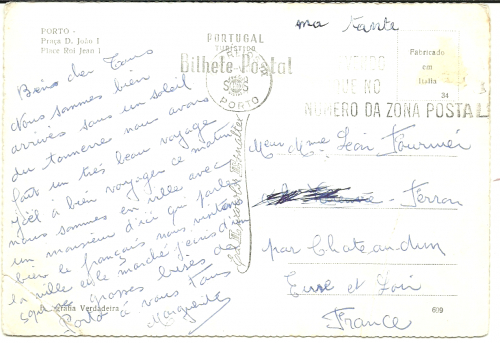 PORTO -
Praça D. João I
Place Roi Jean I
ma tante
PORTUGAL
TURISTIDO
Bilhete Postal
PORTO
NUMERO DA ZONA POSTAL
Fabricado
em
Italia
34
Bien cher Tous
Nous sommes bien
arrivés sous un soleil
du tonnerre nous avons
fait un très beau voyage
Joël à bien voyager ce matin
nous sommes en ville avec
un monsieur d'ici qui parle
bien le français nous visitons
la ville et le marché
grosses bises de
Porto à vous Tous
Marguerite
Mme Léon Fournier
Ferron
par Chateaudun
Eure et Loir
France
Grafia Verdadeira
609